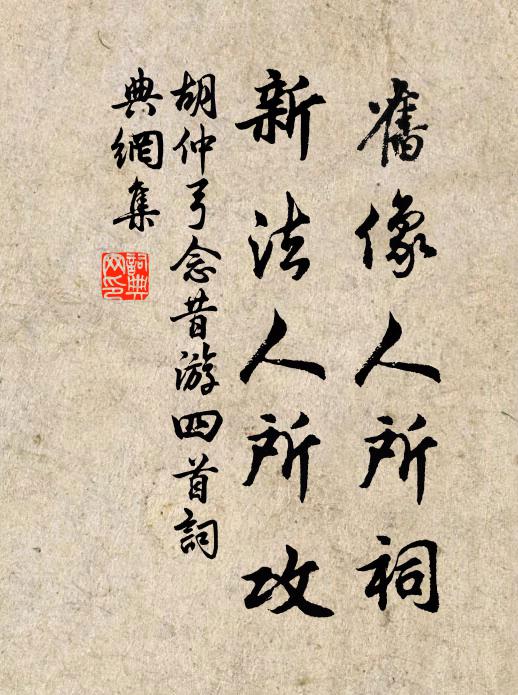 舊像人所祠
新法人所攻
胡仲弓念昔游四首詞
典網集
詞典網印